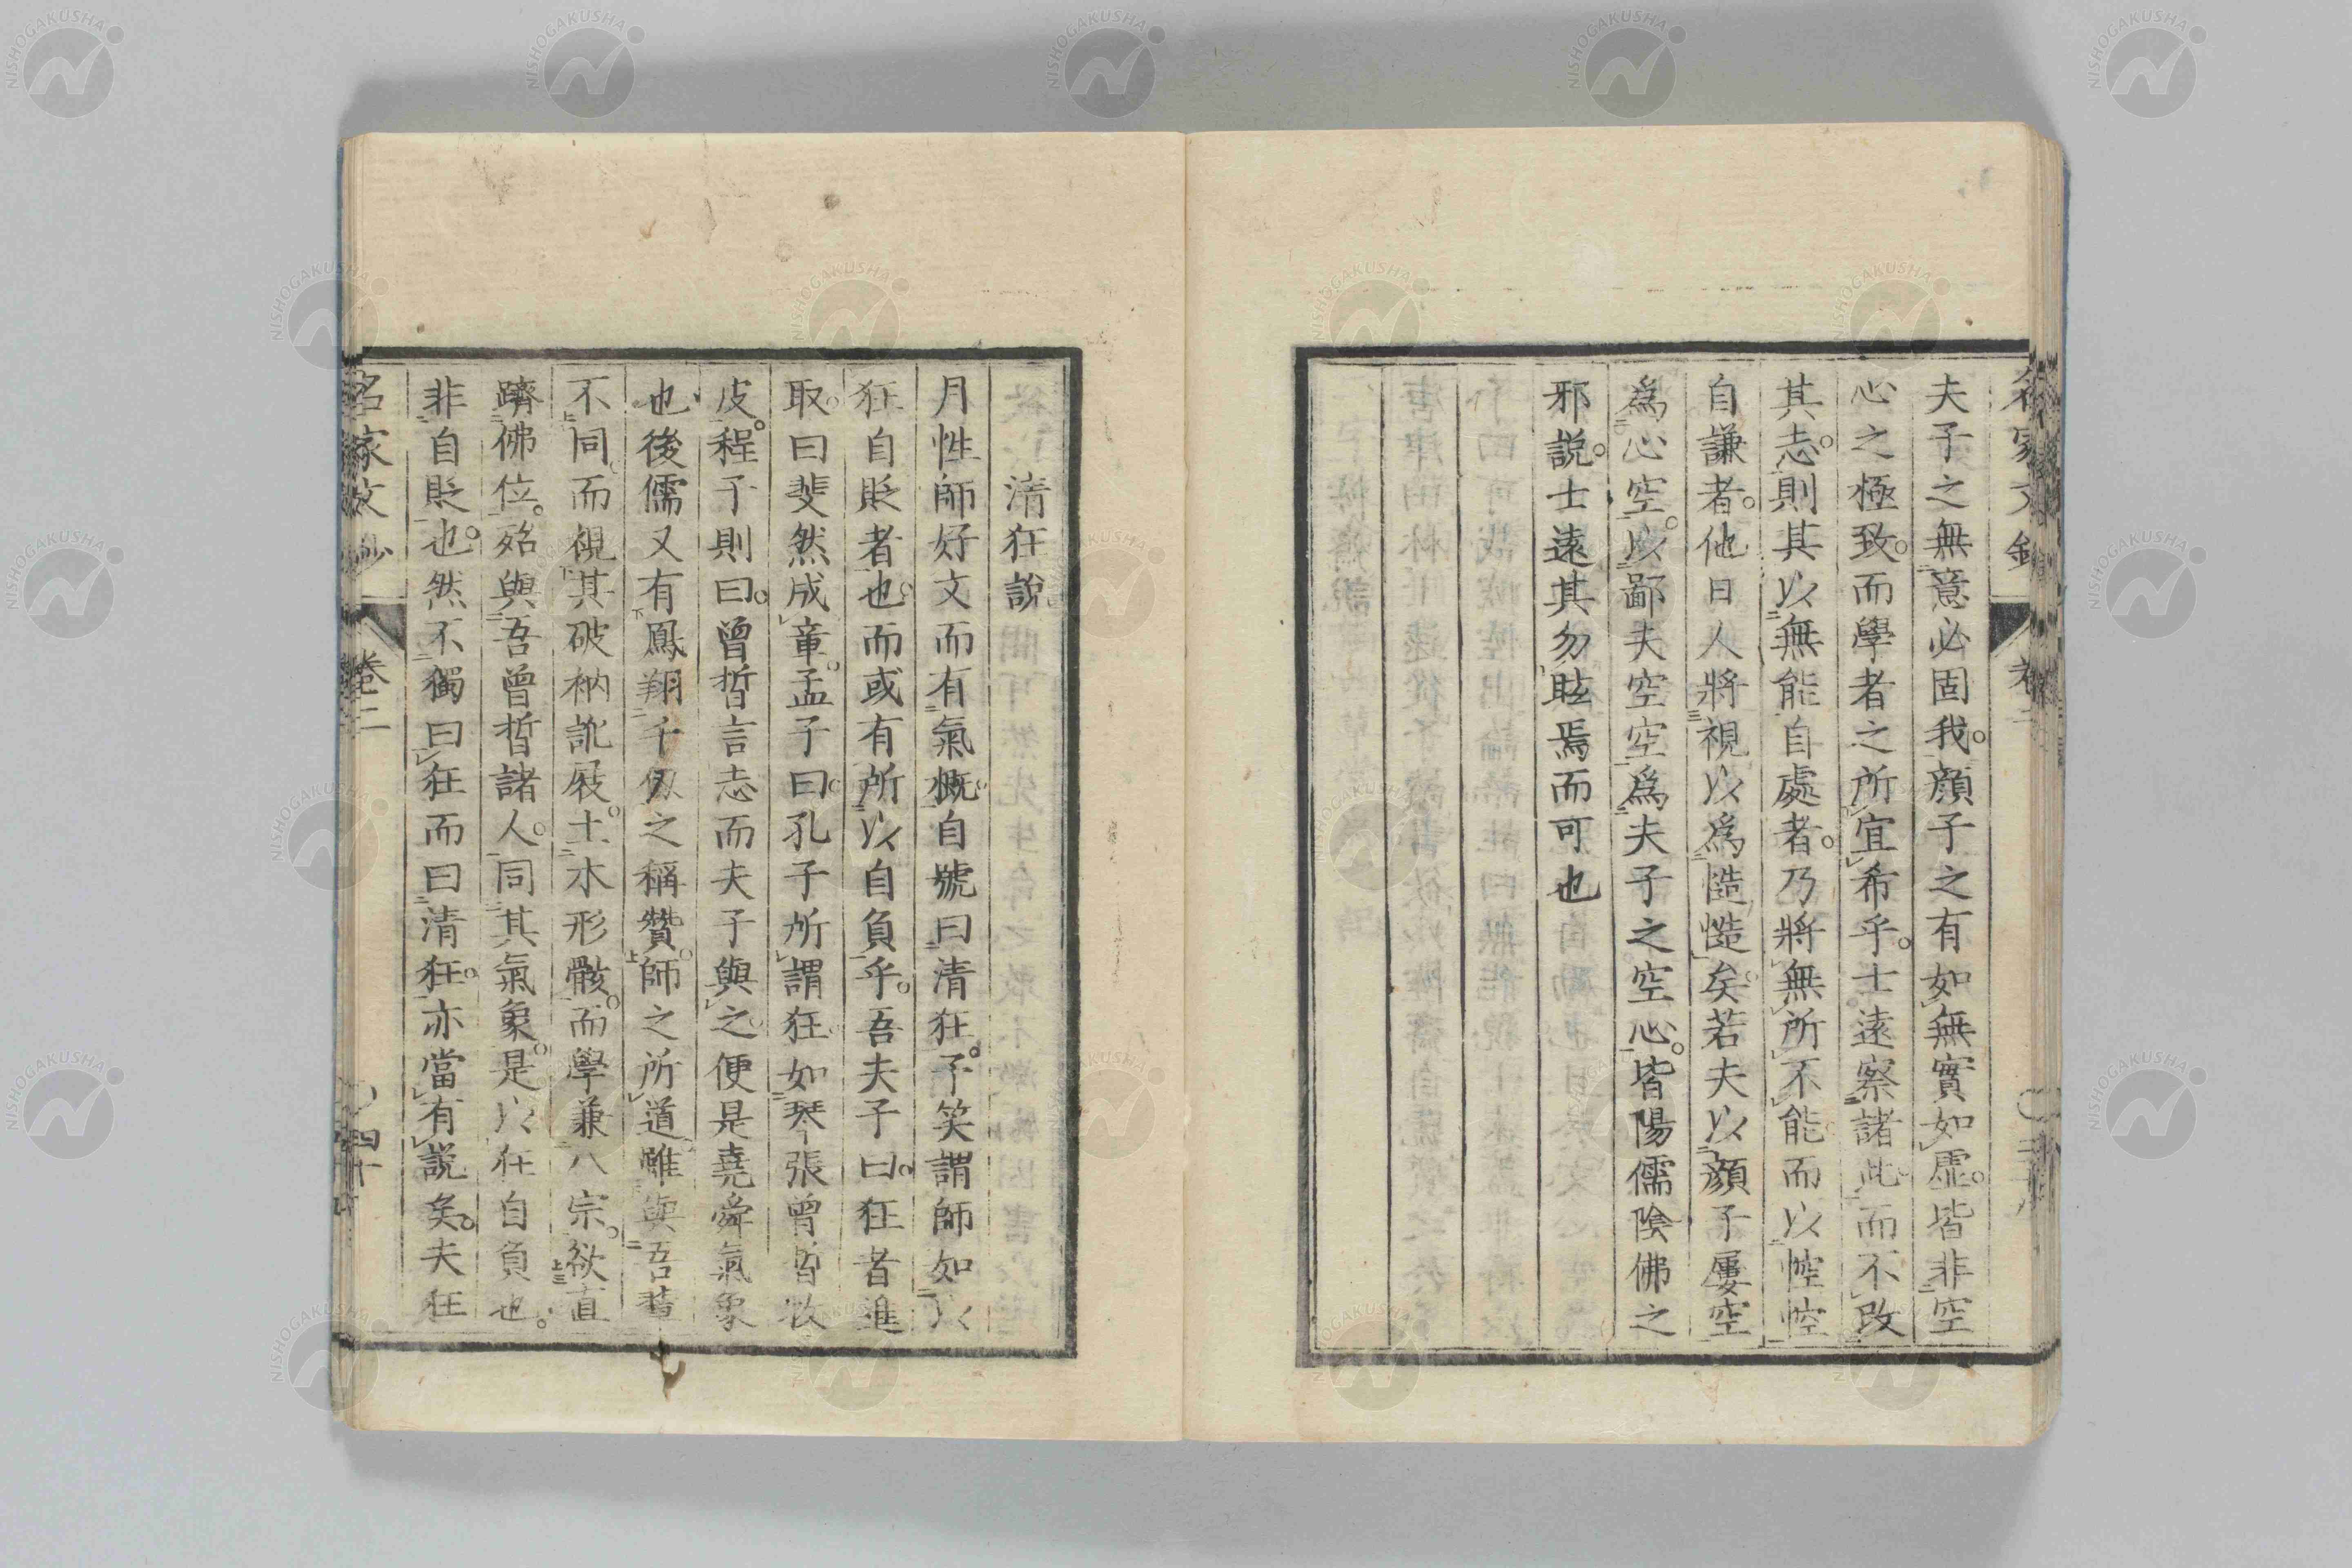 夫子之無意必固我。顔子之有如無實如虚。皆非空
心之極致。而學者之所宜希乎。士遠察諸此。而不改
其志。則其以無能自處者。乃將無所不能。而以悾悾
自謙者。他日人將視以爲慥慥矣。若夫以顔子屢空
爲心空。以鄙夫空空爲夫子之空心。皆陽儒陰佛之
邪説。士遠其勿眩焉而可也
清狂説
月性師好文而有氣概。自號曰清狂。予笑謂師如以
狂自貶者也。而或有所以自負乎。吾夫子曰。狂者進
取。曰斐然成章。孟子曰。孔子所謂狂。如琴張曾皙牧
皮。程子則曰。曾皙言志而夫子與之。便是堯舜氣象
也。後儒又有鳳翔千仭之稱贊。師之所道雖與吾輩
不同。而視其破衲訛屐。土木形骸。而學兼八宗。欲直
躋佛位。殆與吾曾皙諸人。同其氣象。是以狂自負也。
非自貶也。然不獨曰狂而曰清狂。亦當有説矣。夫狂
名家文鈔
卷二
四十
NISHOGAKUSHA